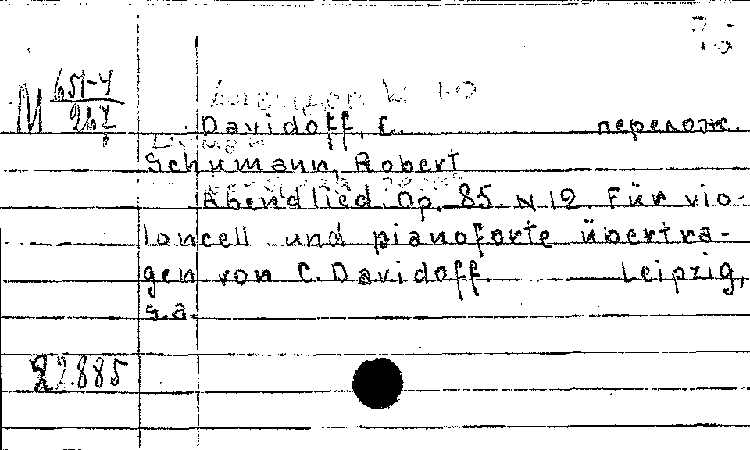 M 651-4
267
Davidoff, C. перелож.
Schumann, Robert
Abendlied Op. 85 N 12. Für vio-
loncell und pianoforte übertra-
gen von C. Davidoff. Leipzig,
s.a.
22885